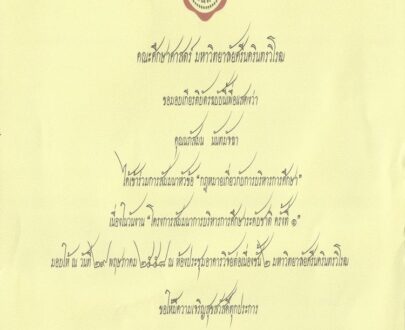 คณะศึกษาศาสตร์ มหาวิทยาลัยศรีนครินทรวิโรฒ
ขอมอบเกียรติบัตรฉบับนี้เพื่อแสดงว่า
ได้เข้าร่วมการสัมมนาหัวข้อ "กฎหมายเกี่ยวกับการบริหารการศึกษา"
เนื่องในงาน "โครงการสัมมนาการบริหารการศึกษาระดับชาติ ครั้งที่ ๑"
มอบให้ ณ วันที่ ๒๙ พฤษภาคม ๒๕๕๘ ณ ห้องประชุมอาคารวิจัยต่อเนื่องชั้น ๒ มหาวิทยาลัยศรีนครินทรวิโรฒ
ขอให้มีความเจริญสุขสวัสดิ์ทุกประการ